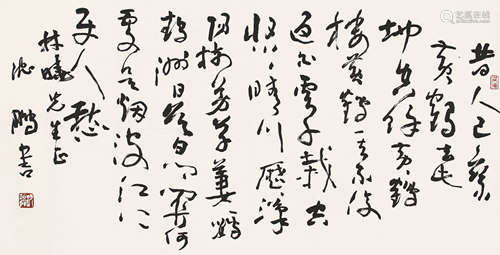 昔人已乘
黄鹤去此
地空余黄鹤
楼黄鹤一去不复
返白云千载空
悠悠晴川历历汉
阳树芳草萋萋鹦
鹉洲日暮乡关何
处是烟波江上
使人愁
林 先生正
沈鹏书
艺狐在线